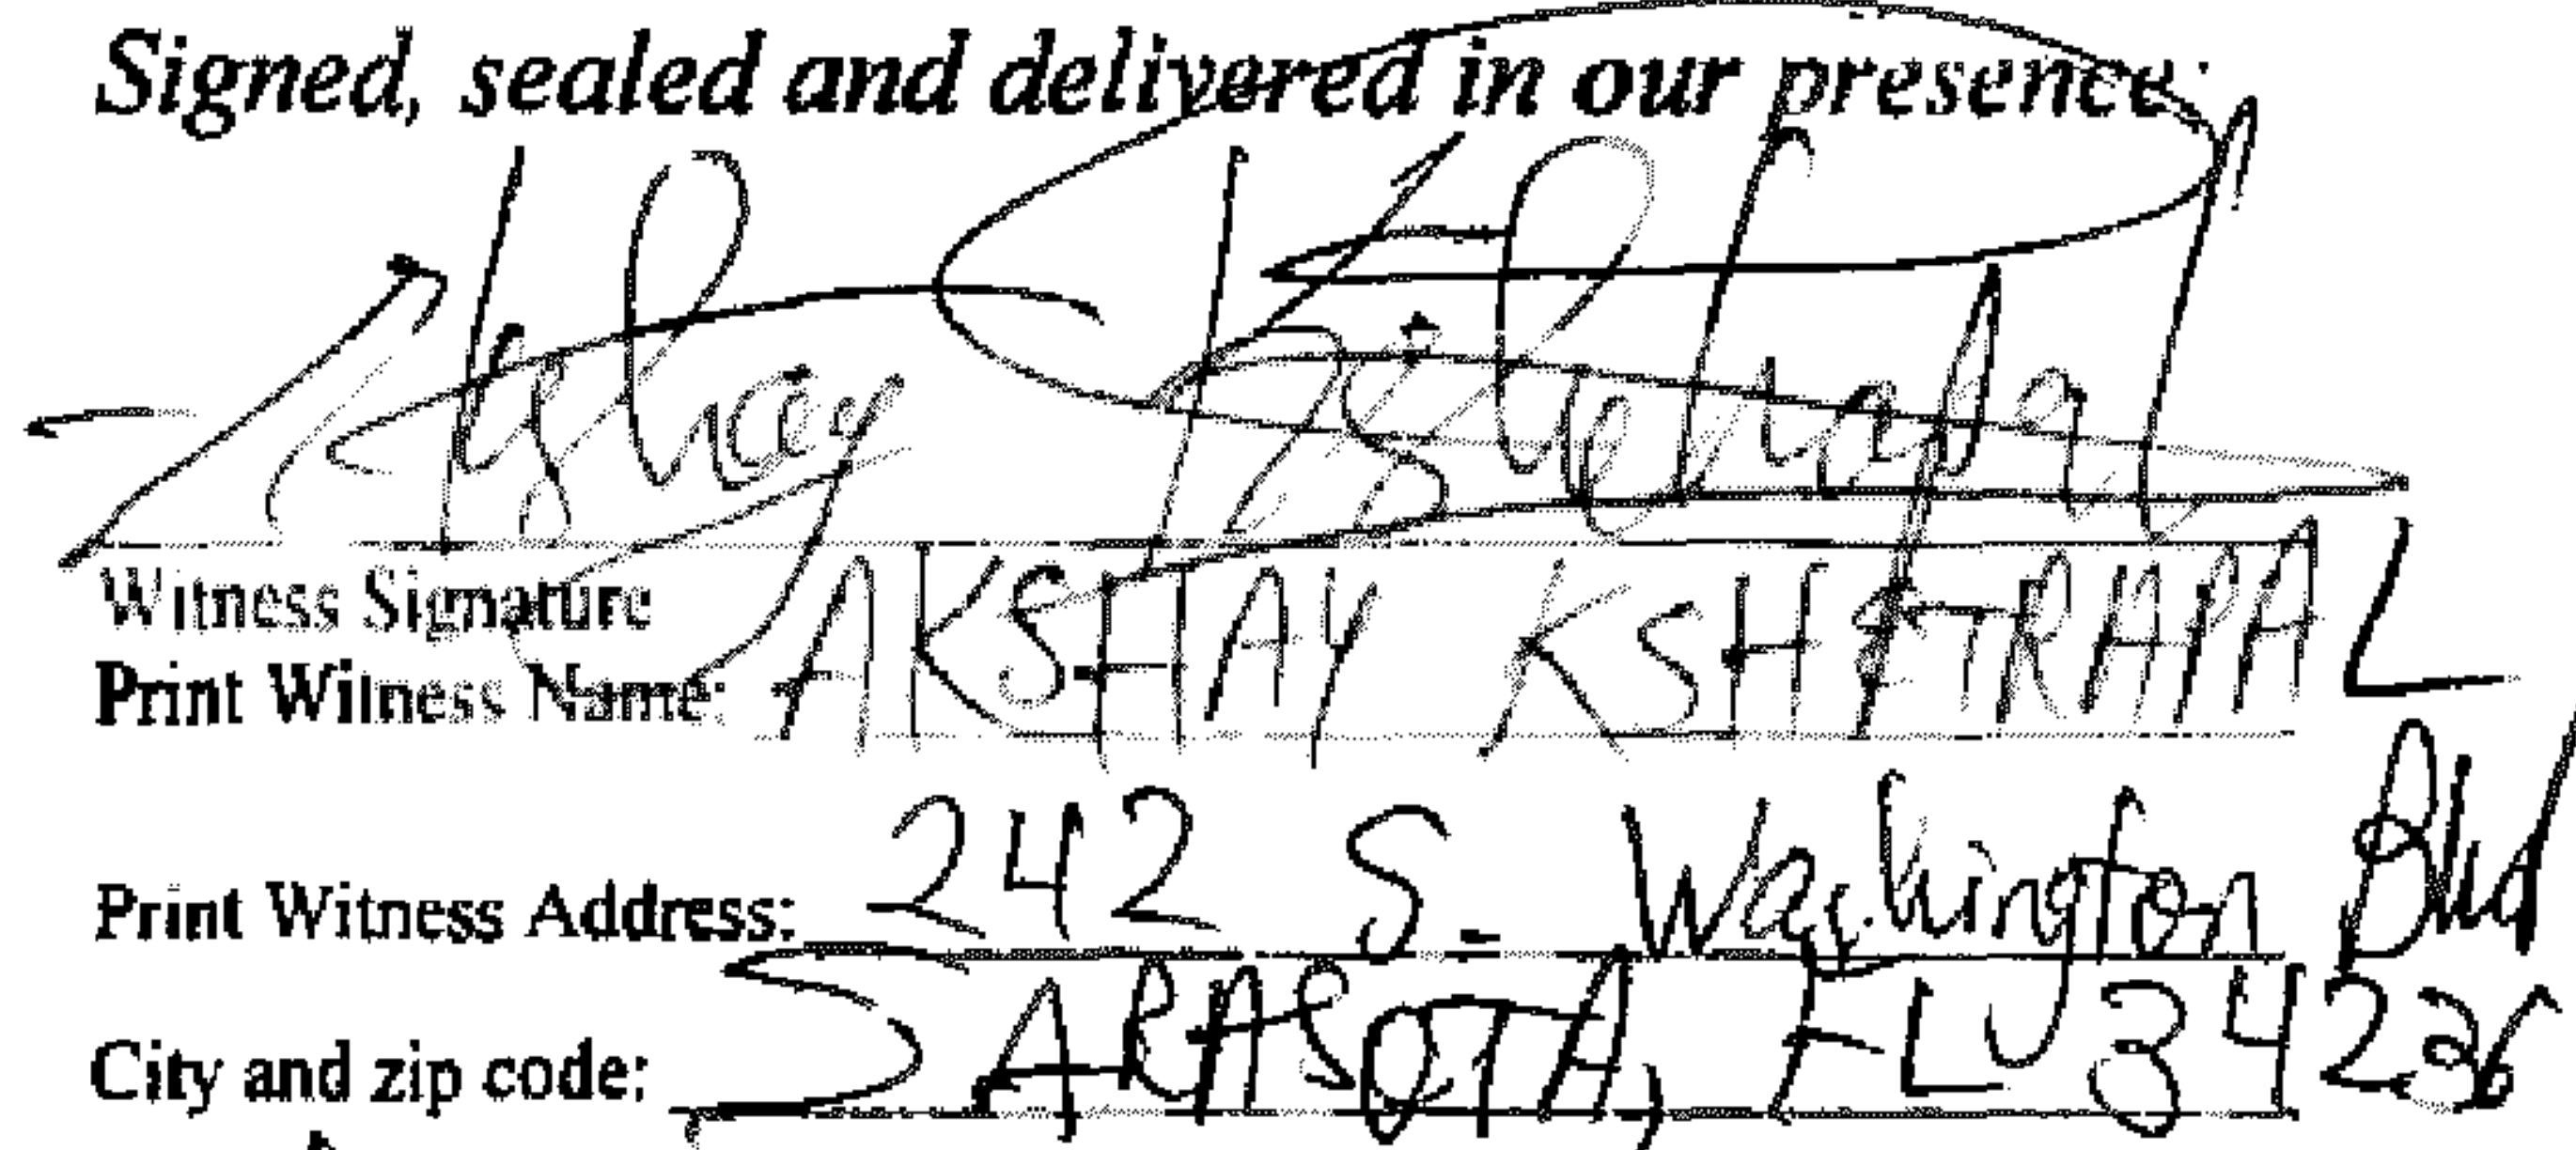 Signed, sealed and delivered in our presence:
Akshay Kshetrapal
Witness Signature
Print Witness Name: AKSHAY KSHETRAPAL
Print Witness Address: 242 S. Washington Blvd
City and zip code: SARASOTA, FL 34236